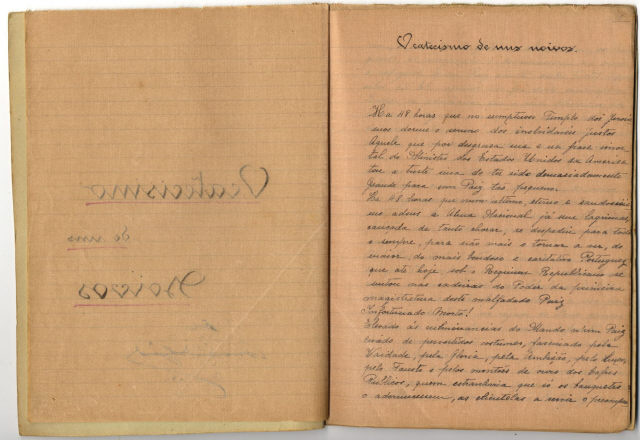 O catecismo de uns noivos.
Ha 48 horas que no sumptuoso Templo dos Jeroni
mos dorme o somno dos inolvidaveis Justos
Aquele que por desgraça sua e na frase imor
tal do Ministro dos Estados Unidos da America
teve a triste sina de ter sido demasiadamente
Grande para um Paiz tão pequeno.
Ha 48 horas que num ultimo, eterno e saudosissi
mo adeus a Alma Nacional já sem lagrimas,
cançada de tanto chorar, se despediu para todo
o sempre, para não mais o tornar a ver, do
maior, do mais bondoso e caritativo Portuguez
que até hoje, sob o Regimen Republicano se
sentou nas cadeiras do Poder da primeira
magistratura deste malfadado Paiz
Infortunado Morto!
Elevado ás culminancias do Mando n'um Paiz
de pervertidos costumes, fascinado pela
Vaidade, pela Gloria, pela Ambição, pelo Luxo,
pelo Fausto e pelos montões de ouro dos Cofres
Publicos, quem estranharia que só os banquetes
o adormecessem, as clientelas a servir o
O catecismo
de uns
Noivos